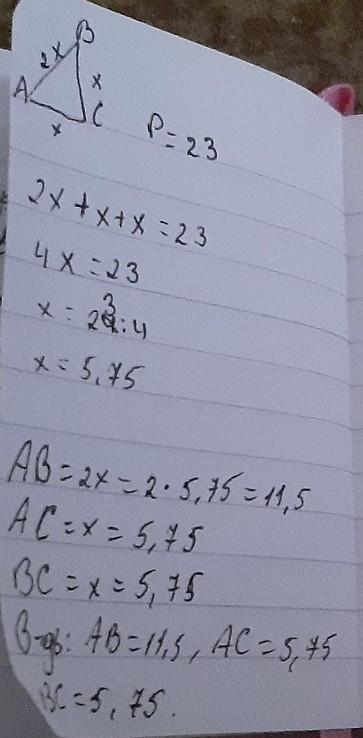 B
2x
x
A
C
x
P = 23
2x + x + x = 23
4x = 23
x = 23 : 4
x = 5,75
AB = 2x = 2 · 5,75 = 11,5
AC = x = 5,75
BC = x = 5,75
В-дь: AB = 11,5, AC = 5,75
BC = 5,75.